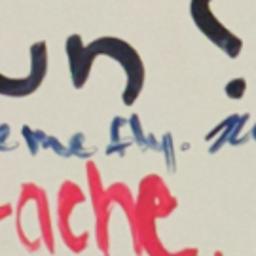 un?
eme fly. x
-ache.